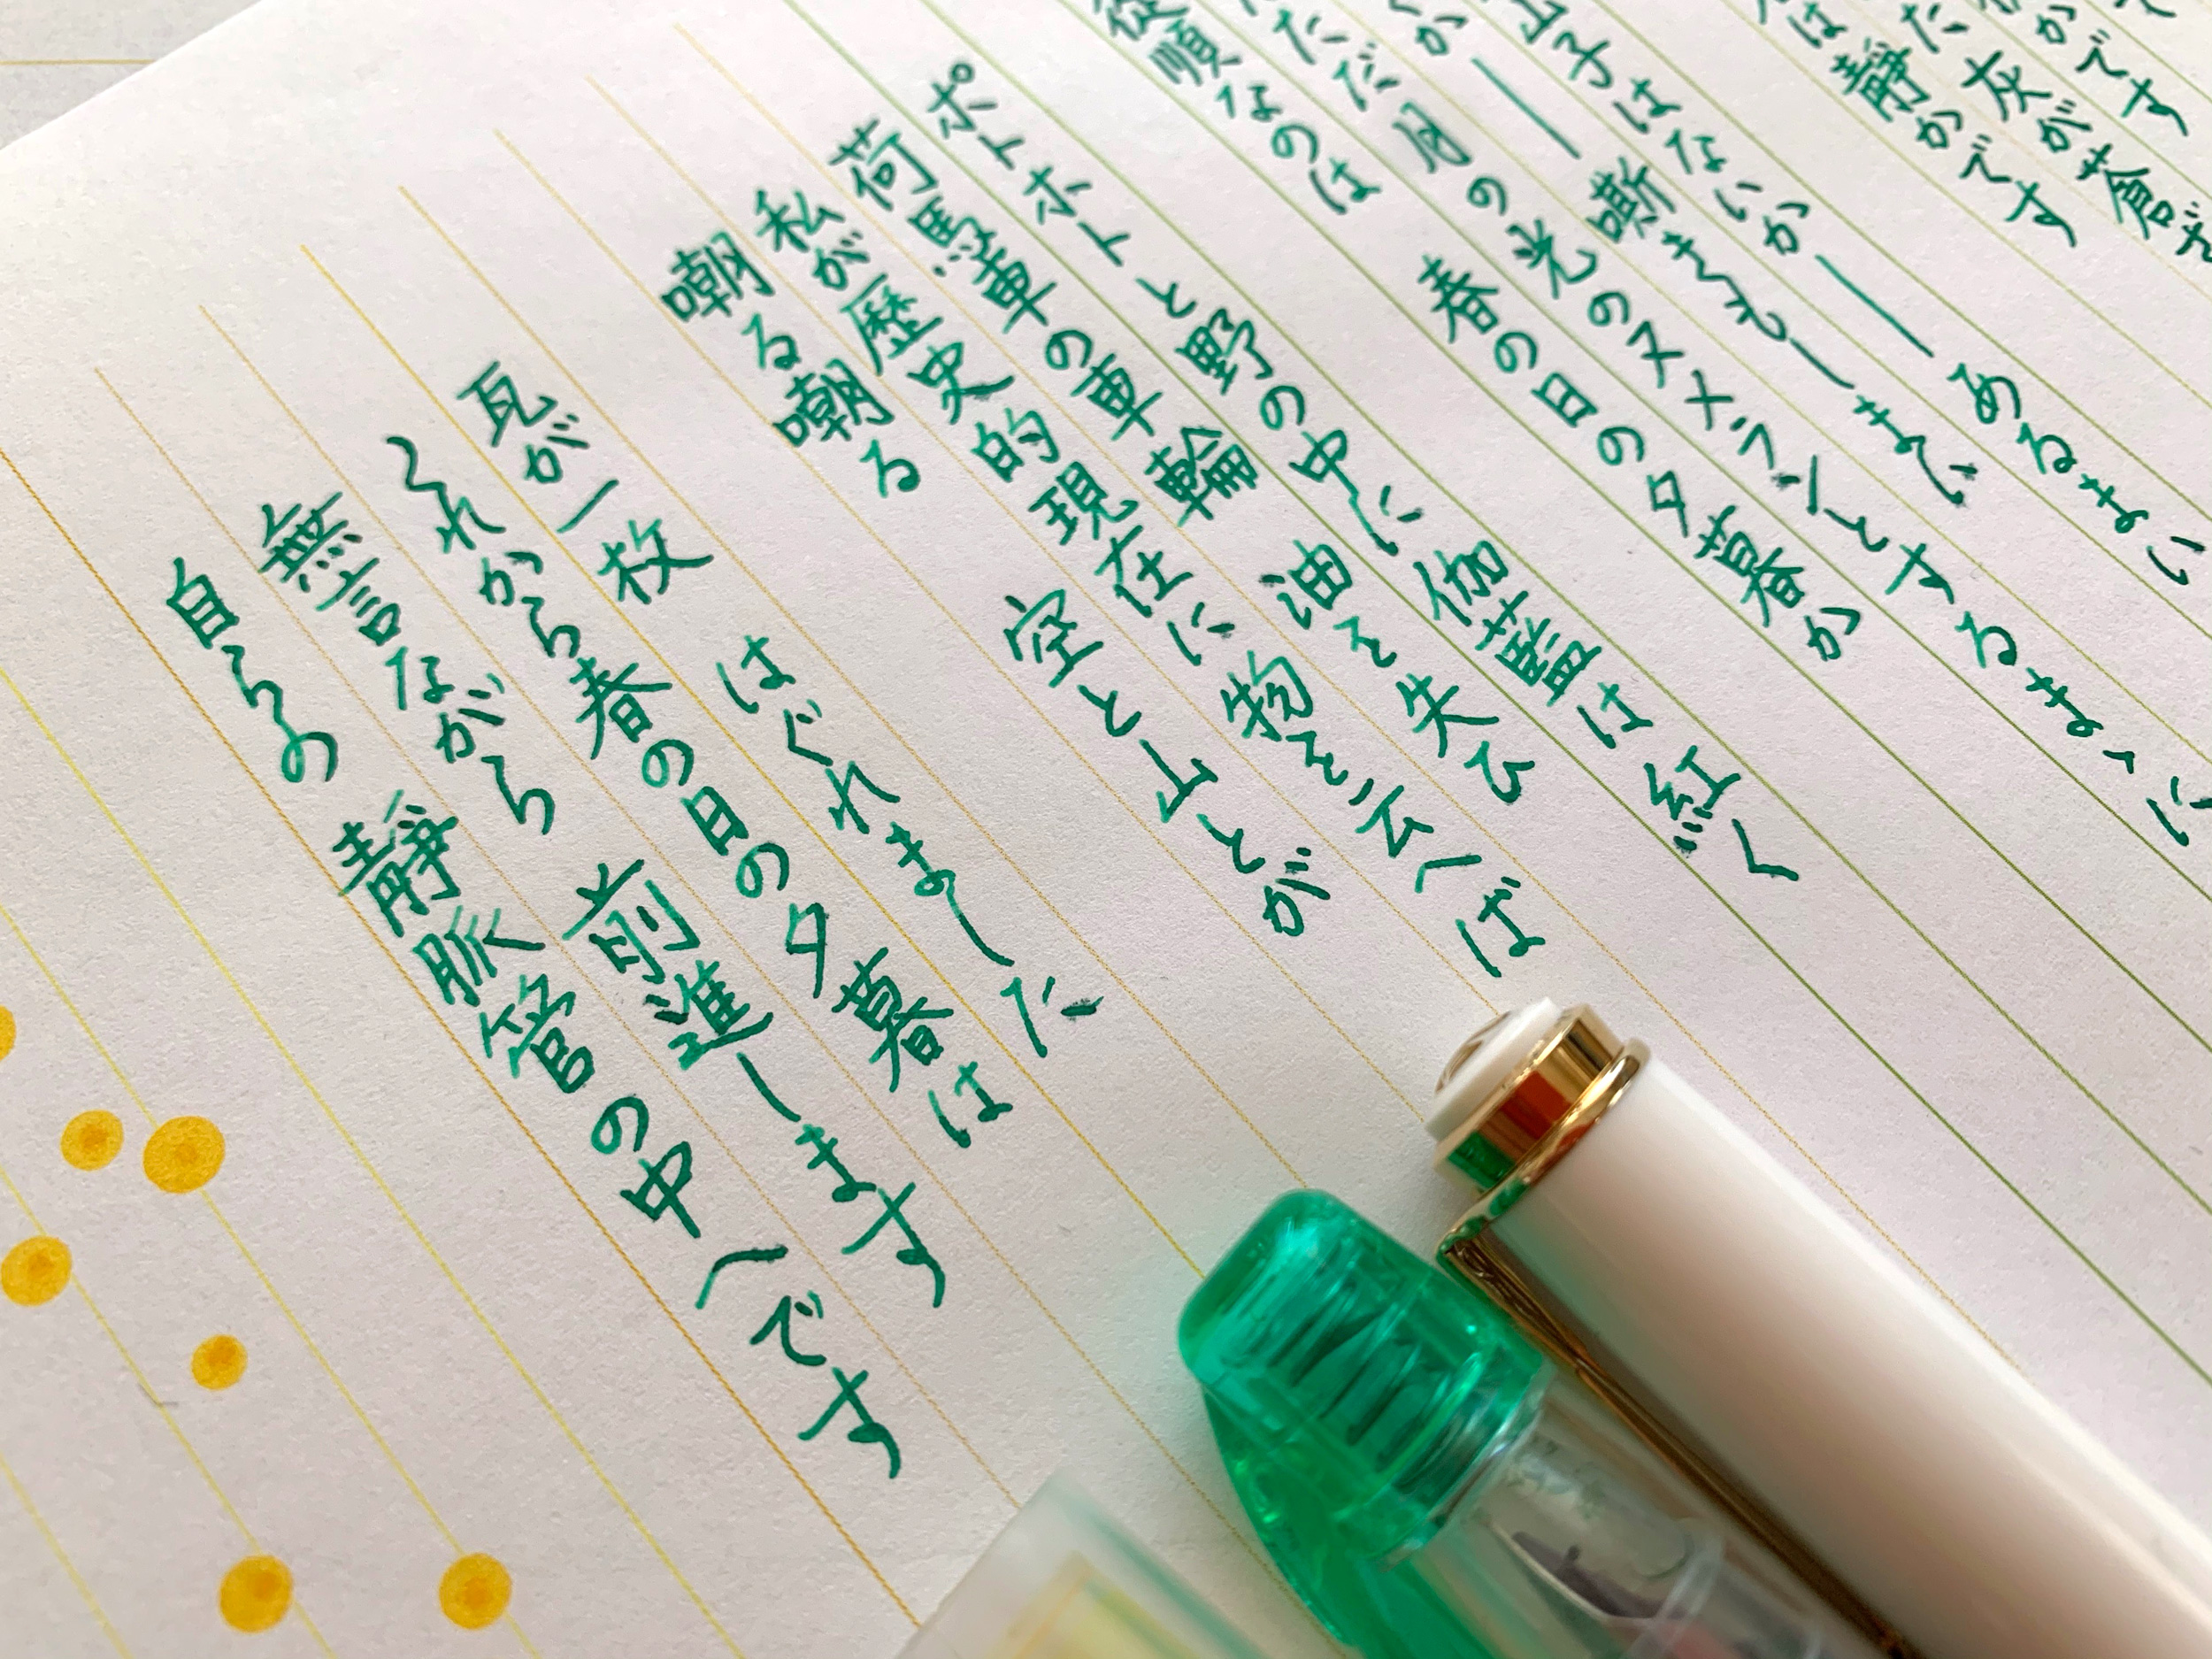 かです
た灰が蒼ざ
は靜かです
山子はないか――あるまい
か――嘶きもしまい
ただ月の光のヌメランとするまゝに
從順なのは 春の日の夕暮か
ポトホトと野の中に伽藍は紅く
荷馬車の車輪 油を失ひ
私が歴史的現在に物を云へば
嘲る嘲る 空と山とが
瓦が一枚 はぐれました
これから春の日の夕暮は
無言ながら 前進します
自らの 靜脈管の中へです